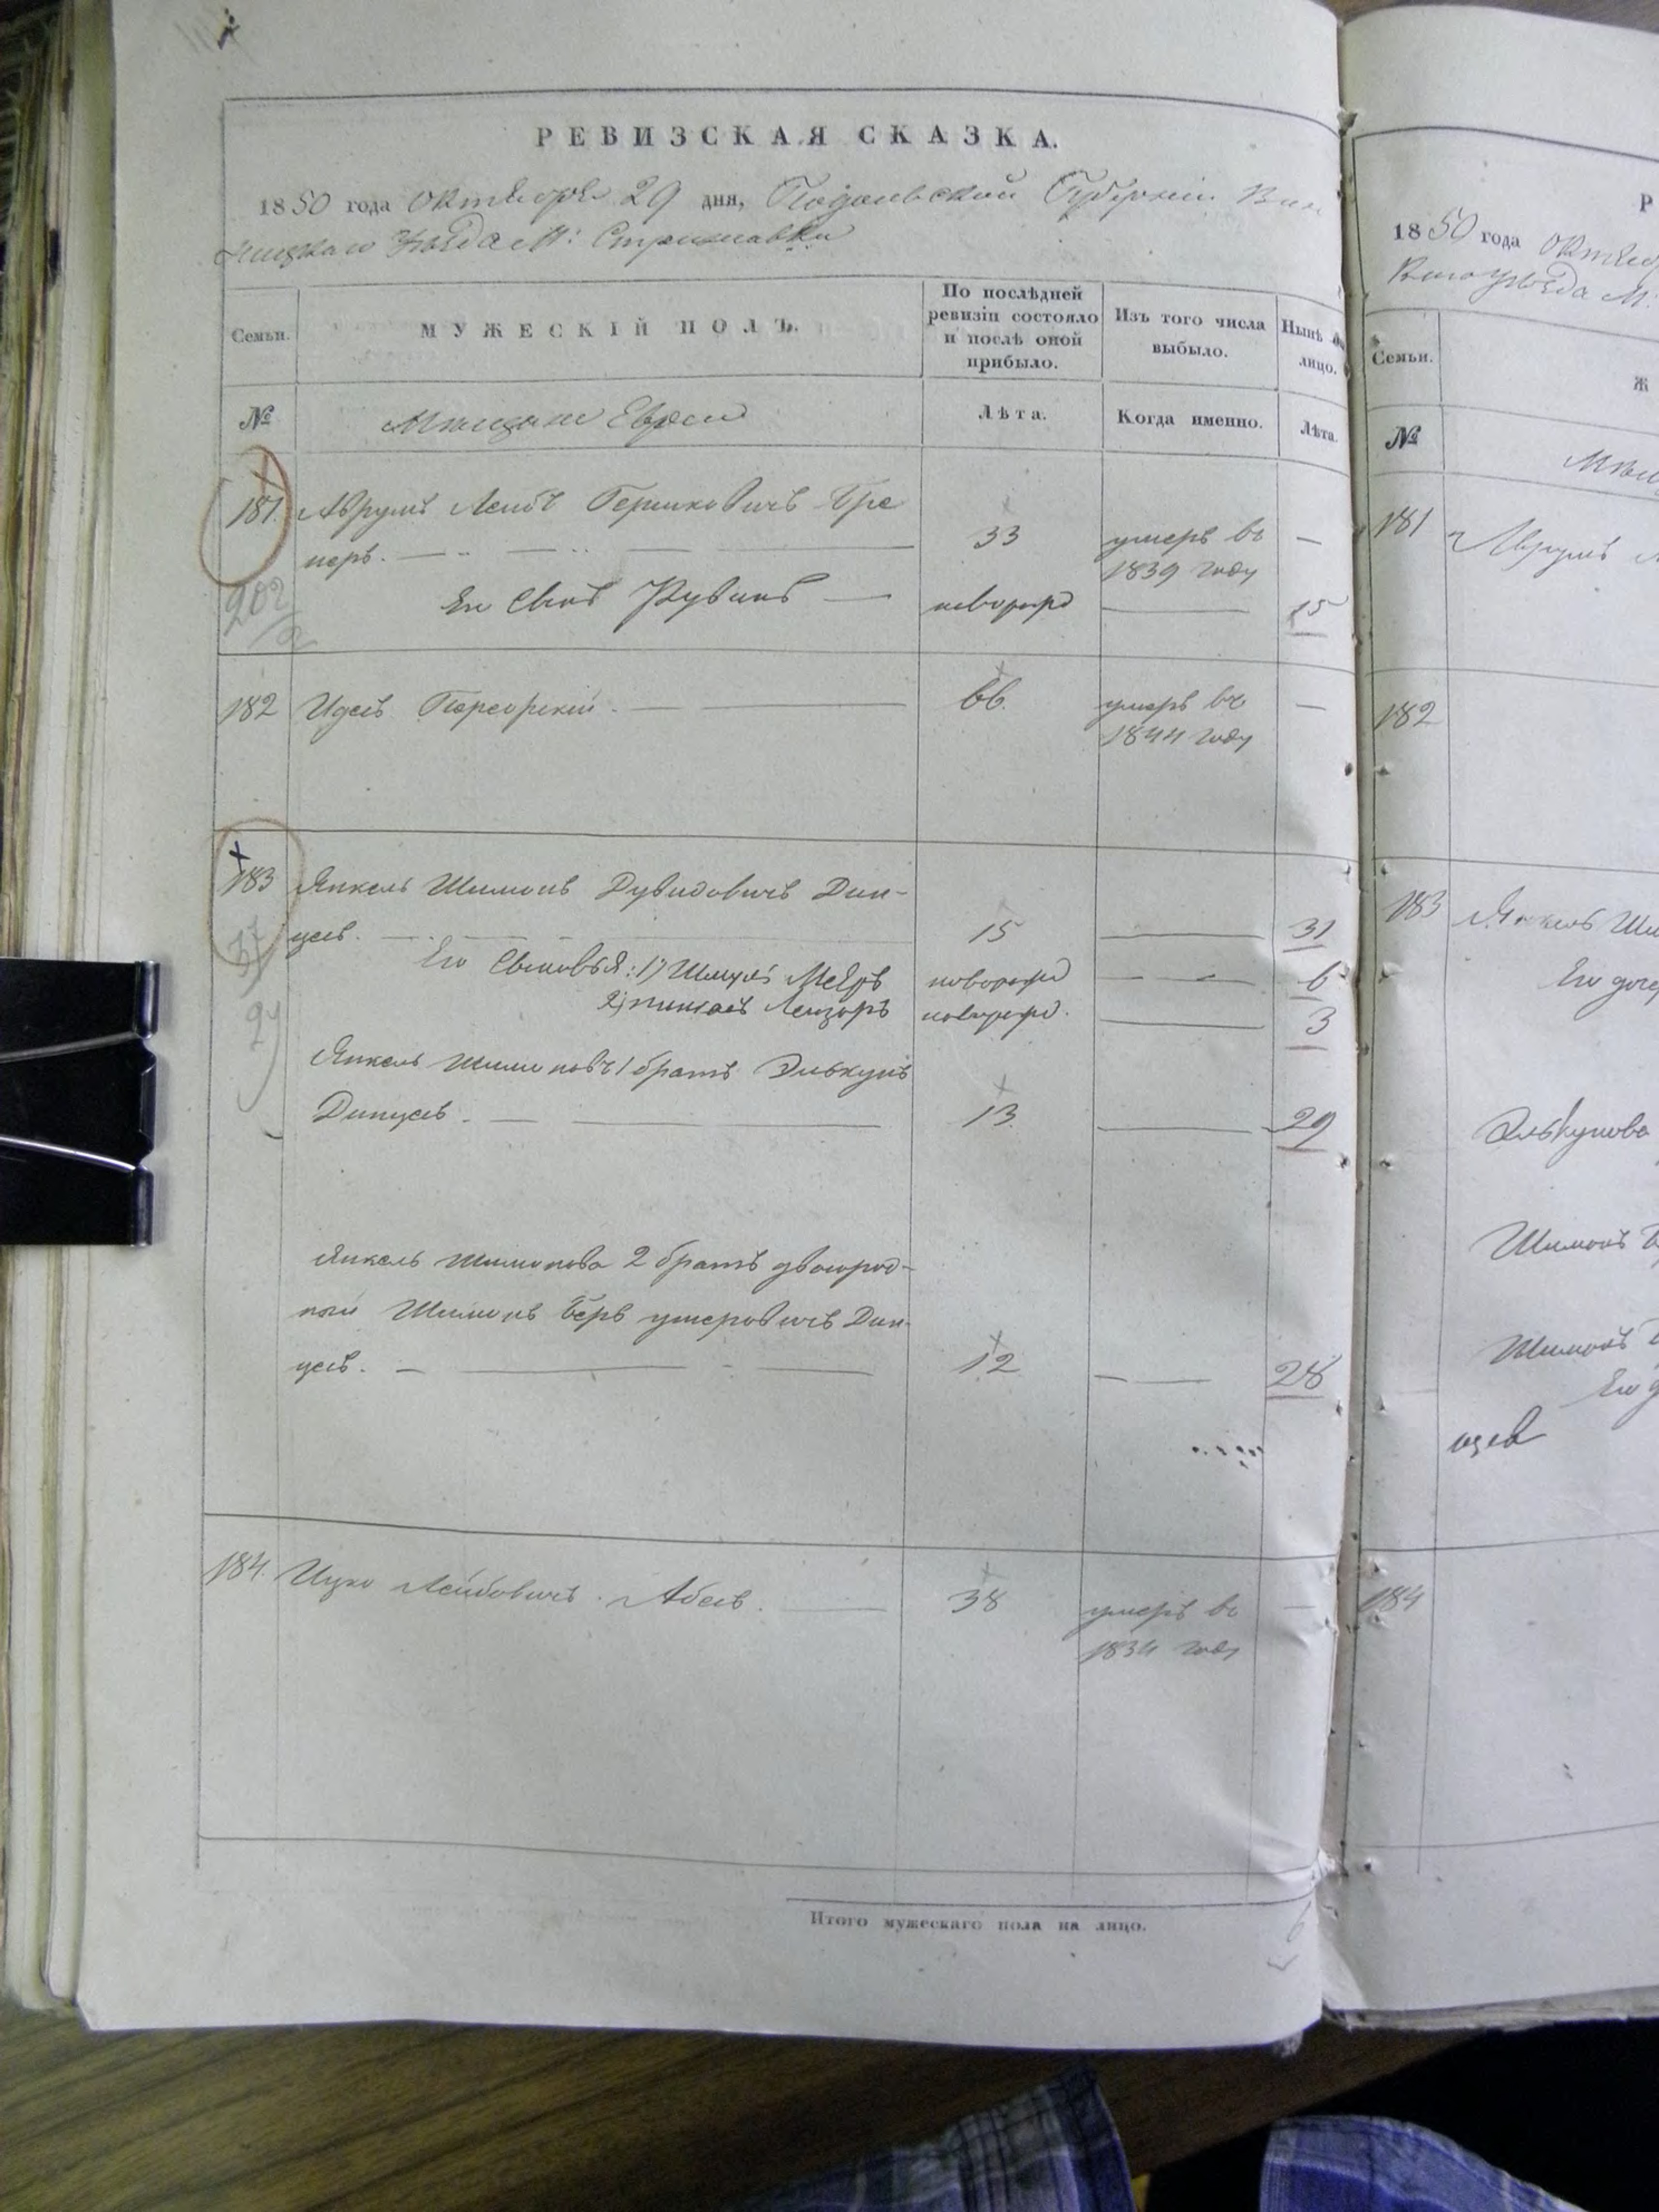 РЕВИЗСКАЯ СКАЗКА.
1850 года Октября 29 дня, Подольской Губернии Вин
ницкаго Уѣзда М: Стрижавки
Семьи.
МУЖЕСКІЙ ПОЛЪ.
По послѣдней ревизіи состояло и послѣ оной прибыло.
Изъ того числа выбыло.
Нынѣ на лицо.
№
Мещане Евреи
Лѣта.
Когда именно.
Лѣта.
181. Аврумъ Лейбъ Гершковичъ
33 умеръ въ —
1839 году
Его Сынъ Рувинъ — новорожд — 15
202
182 Идель — 66. умеръ въ —
1844 году
183 Янкель Шимонъ Дувидовичъ Дин-
цесъ. — 15 — 31
Его Сыновья: 1) Шмуль Меѣръ новорожд — 6
2) Пинхасъ Лейзоръ новорожд. — 3
Янкель Шимоновъ 1 братъ Элькунъ
Динцесъ. — 13. — 29
Янкель Шимонова 2 братъ двоюрод-
ный Шимонъ Беръ Дин-
цесъ. — 12 — 28
184. Ицко Лейбовичъ. — 38 умеръ въ —
1834 году
Итого мужескаго пола на лицо. 6
Р
1850 года Октяб
уѣзда М:
Семьи.
Ж
№
181 Аврумъ Л
182
183 Янкель Ши
Его доч
Элькунова
Шимонъ Б
Шимонъ Б
Его д
184